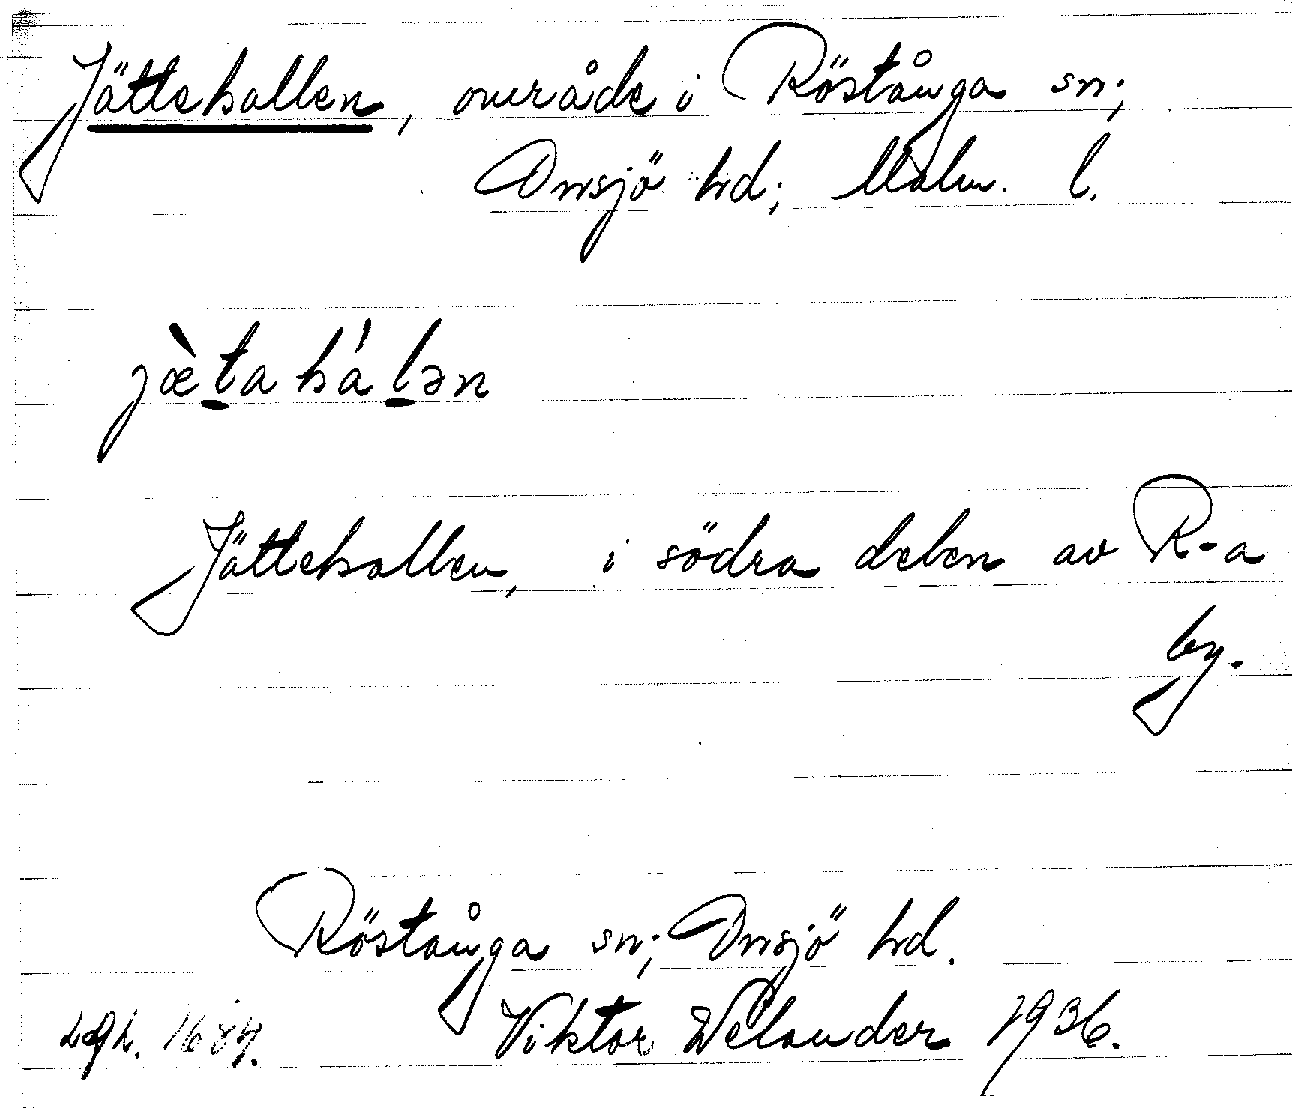 Jättehallen, område i Röstånga sn;
Onsjö hd; Malm. l.
jæ̀ta há lən
Jättehallen, i södra delen av R-a
by.
Röstånga sn; Onsjö hd.
Viktor Welander 1936.